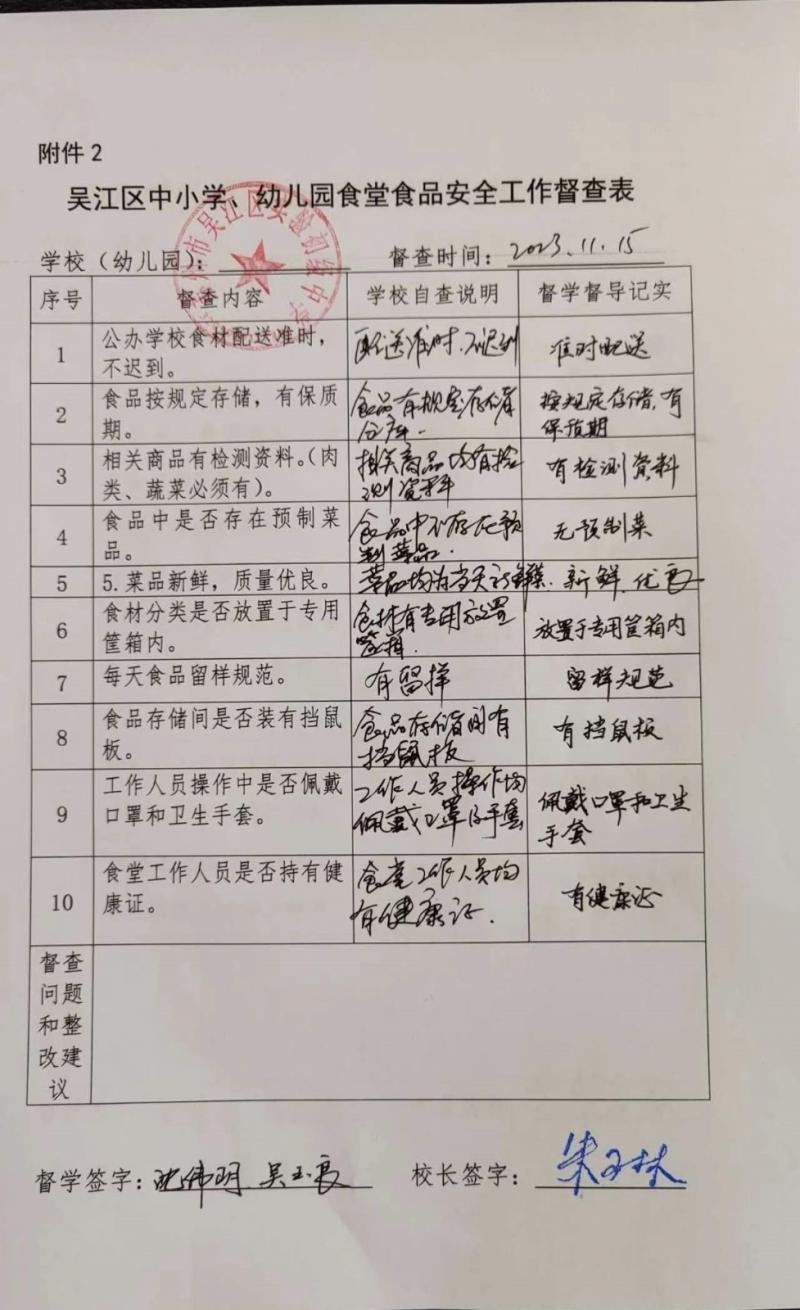 附件2
吴江区中小学、幼儿园食堂食品安全工作督查表
学校（幼儿园）： 督查时间：2023.11.15
序号 督查内容 学校自查说明 督学督导记实
1 公办学校食材配送准时， 配送准时.不迟到 准时配送
不迟到。
2 食品按规定存储，有保质 食品有规定存储 按规定存储,有
期。 仓库. 保质期
3 相关商品有检测资料。（肉 相关商品均有检 有检测资料
类、蔬菜必须有）。 测资料
4 食品中是否存在预制菜 食品中不存在预 无预制菜
品。 制菜品.
5 5.菜品新鲜，质量优良。 菜品均为当天 新鲜.优良
6 食材分类是否放置于专用 食材有专用放置 放置于专用筐箱内
筐箱内。 筐箱.
7 每天食品留样规范。 有留样 留样规范
8 食品存储间是否装有挡鼠 食品存储间有 有挡鼠板
板。 挡鼠板
9 工作人员操作中是否佩戴 工作人员操作均 佩戴口罩和卫生
口罩和卫生手套。 佩戴口罩及手套 手套
10 食堂工作人员是否持有健 食堂工作人员均 有健康证
康证。 有健康证.
督查
问题
和整
改建
议
督学签字：沈伟明 吴玉良 校长签字：朱玉林